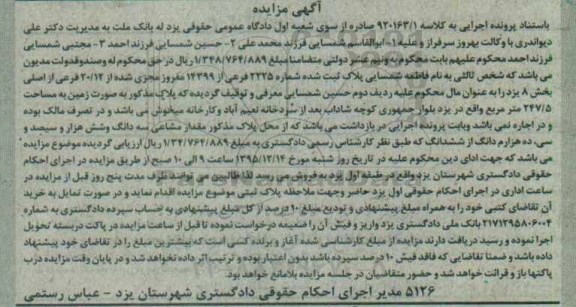 آگهی مزایده
باستناد پرونده اجرایی به کلاسه ۹۲۰۱۶۳/۱ صادره از سوی شعبه اول دادگاه عمومی حقوقی یزد له بانک ملت به مدیریت دکتر علی
دیواندری با وکالت بهروز سرفراز و علیه ۱- ابوالقاسم شمسایی فرزند محمد علی ۲- حسین شمسایی فرزند احمد ۳- مجتبی شمسایی
فرزند احمد محکوم علیهم بابت محکوم به ونیم عشر دولتی متضامنا مبلغ ۱/۳۴۸/۷۶۴/۸۸۹ ریال در حق محکوم له وصندوق دولت مدیون
می باشد که شخص ثالثی به نام فاطمه شمسایی پلاک ثبت شده شماره ۲۲۲۵ فرعی از ۱۴۳۹۹ مفروز مجزی شده از ۲۰/۱۲ فرعی از اصلی
بخش ۸ یزد را به عنوان مال محکوم علیه ردیف دوم حسین شمسایی معرفی و توقیف گردیده که پلاک مذکور به صورت زمین به مساحت
۲۴۷/۵ متر مربع واقع در یزد بلوار جمهوری کوچه شاداب بعد از سردخانه نعیم آباد وکارخانه میخوش می باشد و در تصرف مالک بوده
و در اجاره نمی باشد وبابت پرونده اجرایی در بازداشت می باشد که از محل پلاک مذکور مقدار مشاعی سه دانگ وشش هزار و سیصد و
سی، ده هزارم دانگ از ششدانگ که طبق نظر کارشناس رسمی دادگستری به مبلغ ۱/۳۴/۷۶۴/۸۸۹ ریال ارزیابی گردیده موضوع مزایده
می باشد که جهت ادای دین محکوم علیه در تاریخ روز شنبه مورخ ۱۳۹۵/۱۲/۱۴ ساعت ۹ الی ۱۰ صبح از طریق مزایده در اجرای احکام
حقوقی دادگستری شهرستان یزد واقع در طبقه اول یزد به فروش می رسد لذا طالبین می توانند ظرف مدت پنج روز قبل از مزایده در
ساعت اداری در اجرای احکام حقوقی اول یزد حاضر وجهت ملاحظه پلاک ثبتی موضوع مزایده اقدام نماید و در صورت تمایل به خرید
آن تقاضای کتبی خود را به همراه مبلغ پیشنهادی و تودیع مبلغ ۱۰ درصد از کل مبلغ پیشنهادی به حساب سپرده دادگستری به شماره
۲۱۷۱۲۹۵۸۰۶۰۰۴ بانک ملی دادگستری یزد واریز و فیش آن را ضمیمه درخواست نموده تا قبل از ساعت مزایده در پاکت دربسته تحویل
اجرا نموده و رسید دریافت دارند مزایده از مبلغ کارشناسی شده آغاز و برنده کسی است که بیشترین مبلغ را در تقاضای خود پیشنهاد
داده باشد و ضمنا تقاضایی که فاقد فیش ۱۰ درصد سپرده باشد بدون اعتبار بوده و ترتیب اثر داده نخواهد شد و در پایان وقت مزایده درب
پاکتها باز و قرائت خواهد شد و حضور متقاضیان در جلسه مزایده بلامانع خواهد بود.
۵۱۲۶ مدیر اجرای احکام حقوقی دادگستری شهرستان یزد - عباس رستمی